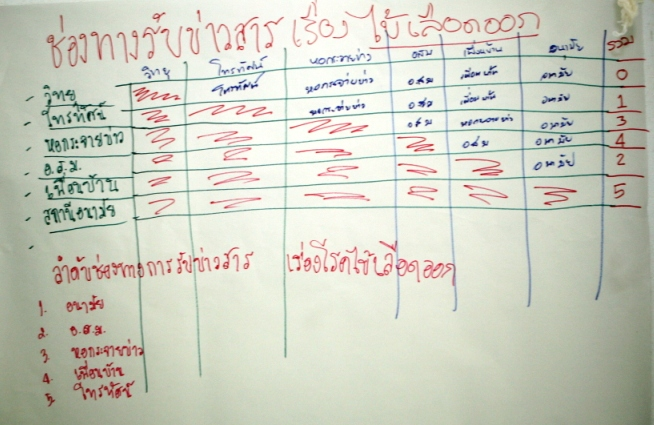 ช่องทางรับข่าวสาร เรื่อง ไข้เลือดออก
วิทยุ โทรทัศน์ หอกระจายข่าว อสม เพื่อนบ้าน อนามัย รวม
- วิทยุ โทรทัศน์ หอกระจายข่าว อสม เพื่อนบ้าน อนามัย 0
- โทรทัศน์ หอกระจายข่าว อสม เพื่อนบ้าน อนามัย 1
- หอกระจายข่าว อสม หอกระจายข่าว อนามัย 3
- อ.ส.ม. อสม อนามัย 4
- เพื่อนบ้าน อนามัย 2
- สถานีอนามัย 5
-
ลำดับช่องทางการรับข่าวสาร เรื่องโรคไข้เลือดออก
1. อนามัย
2. อ.ส.ม.
3. หอกระจายข่าว
4. เพื่อนบ้าน
5. โทรทัศน์